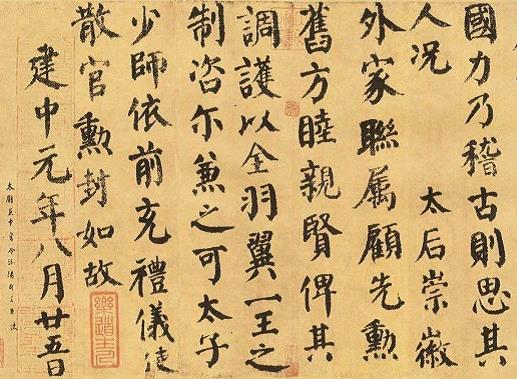 國力乃稽古則思其
人况 太后崇徽
外家聯属顧先勳
舊方睦親賢俾其
調護以全羽翼一王之
制咨尔兼之可太子
少師依前充禮儀使
散官勳封如故
建中元年八月廿五日
太尉兼中書令汾陽郡王